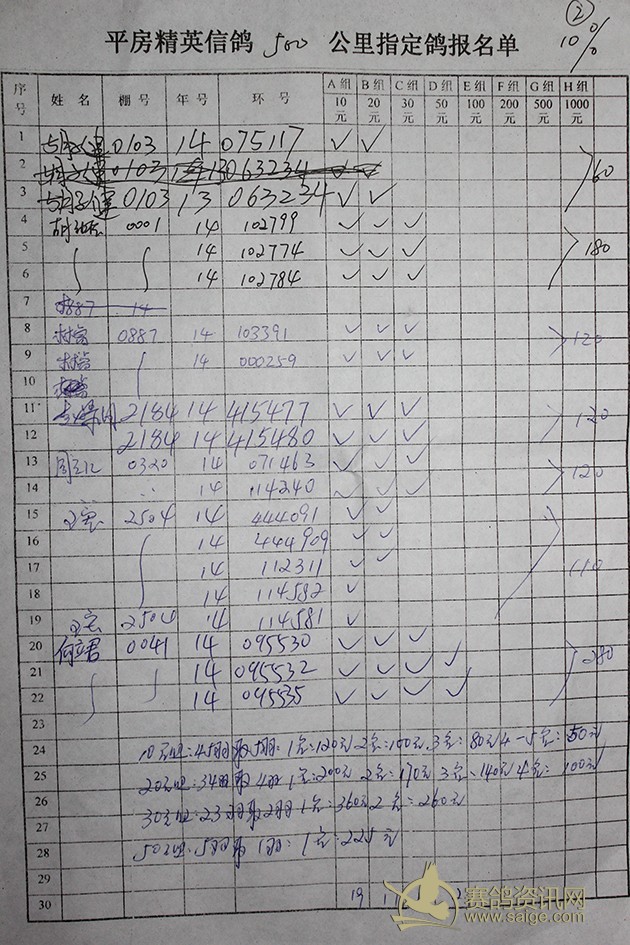 ②
10%
平房精英信鸽 500 公里指定鸽报名单
序号 姓名 棚号 年号 环号 A组 10元 B组 20元 C组 30元 D组 50元 E组 100元 F组 200元 G组 500元 H组 1000元
1 0103 14 075117 ✓ ✓
2 0103 13 063234
3 0103 13 063234 ✓ ✓ 60
4 0001 14 102799 ✓ ✓ ✓
5 14 102774 ✓ ✓ ✓ 180
6 14 102784 ✓ ✓ ✓
7 0887 14
8 0887 14 103391 ✓ ✓ ✓ 120
9 14 000259 ✓ ✓ ✓
10
11 2184 14 415477 ✓ ✓ ✓ 120
12 2184 14 415480 ✓ ✓ ✓
13 0320 14 071463 ✓ ✓ ✓ 120
14 14 114240 ✓ ✓ ✓
15 2504 14 444091 ✓ ✓
16 14 444909 ✓ ✓
17 14 112311 ✓ ✓ 110
18 14 114582 ✓
19 2504 14 114581 ✓
20 何立君 0041 14 095530 ✓ ✓ ✓
21 14 095532 ✓ ✓ ✓ ✓ 280
22 14 095535 ✓ ✓ ✓ ✓
23
24 10元组:45羽取5羽:1名:120元 2名:100元 3名:80元 4-5名:50元
25 20元组:34羽取4羽 1名:200元 2名:170元 3名:140元 4名:100元
26 30元组:23羽取2羽 1名:360元 2名:260元
27
28 50元组:5羽取1羽:1名:225元
29
30 19 1
赛鸽资讯网
www.saige.com